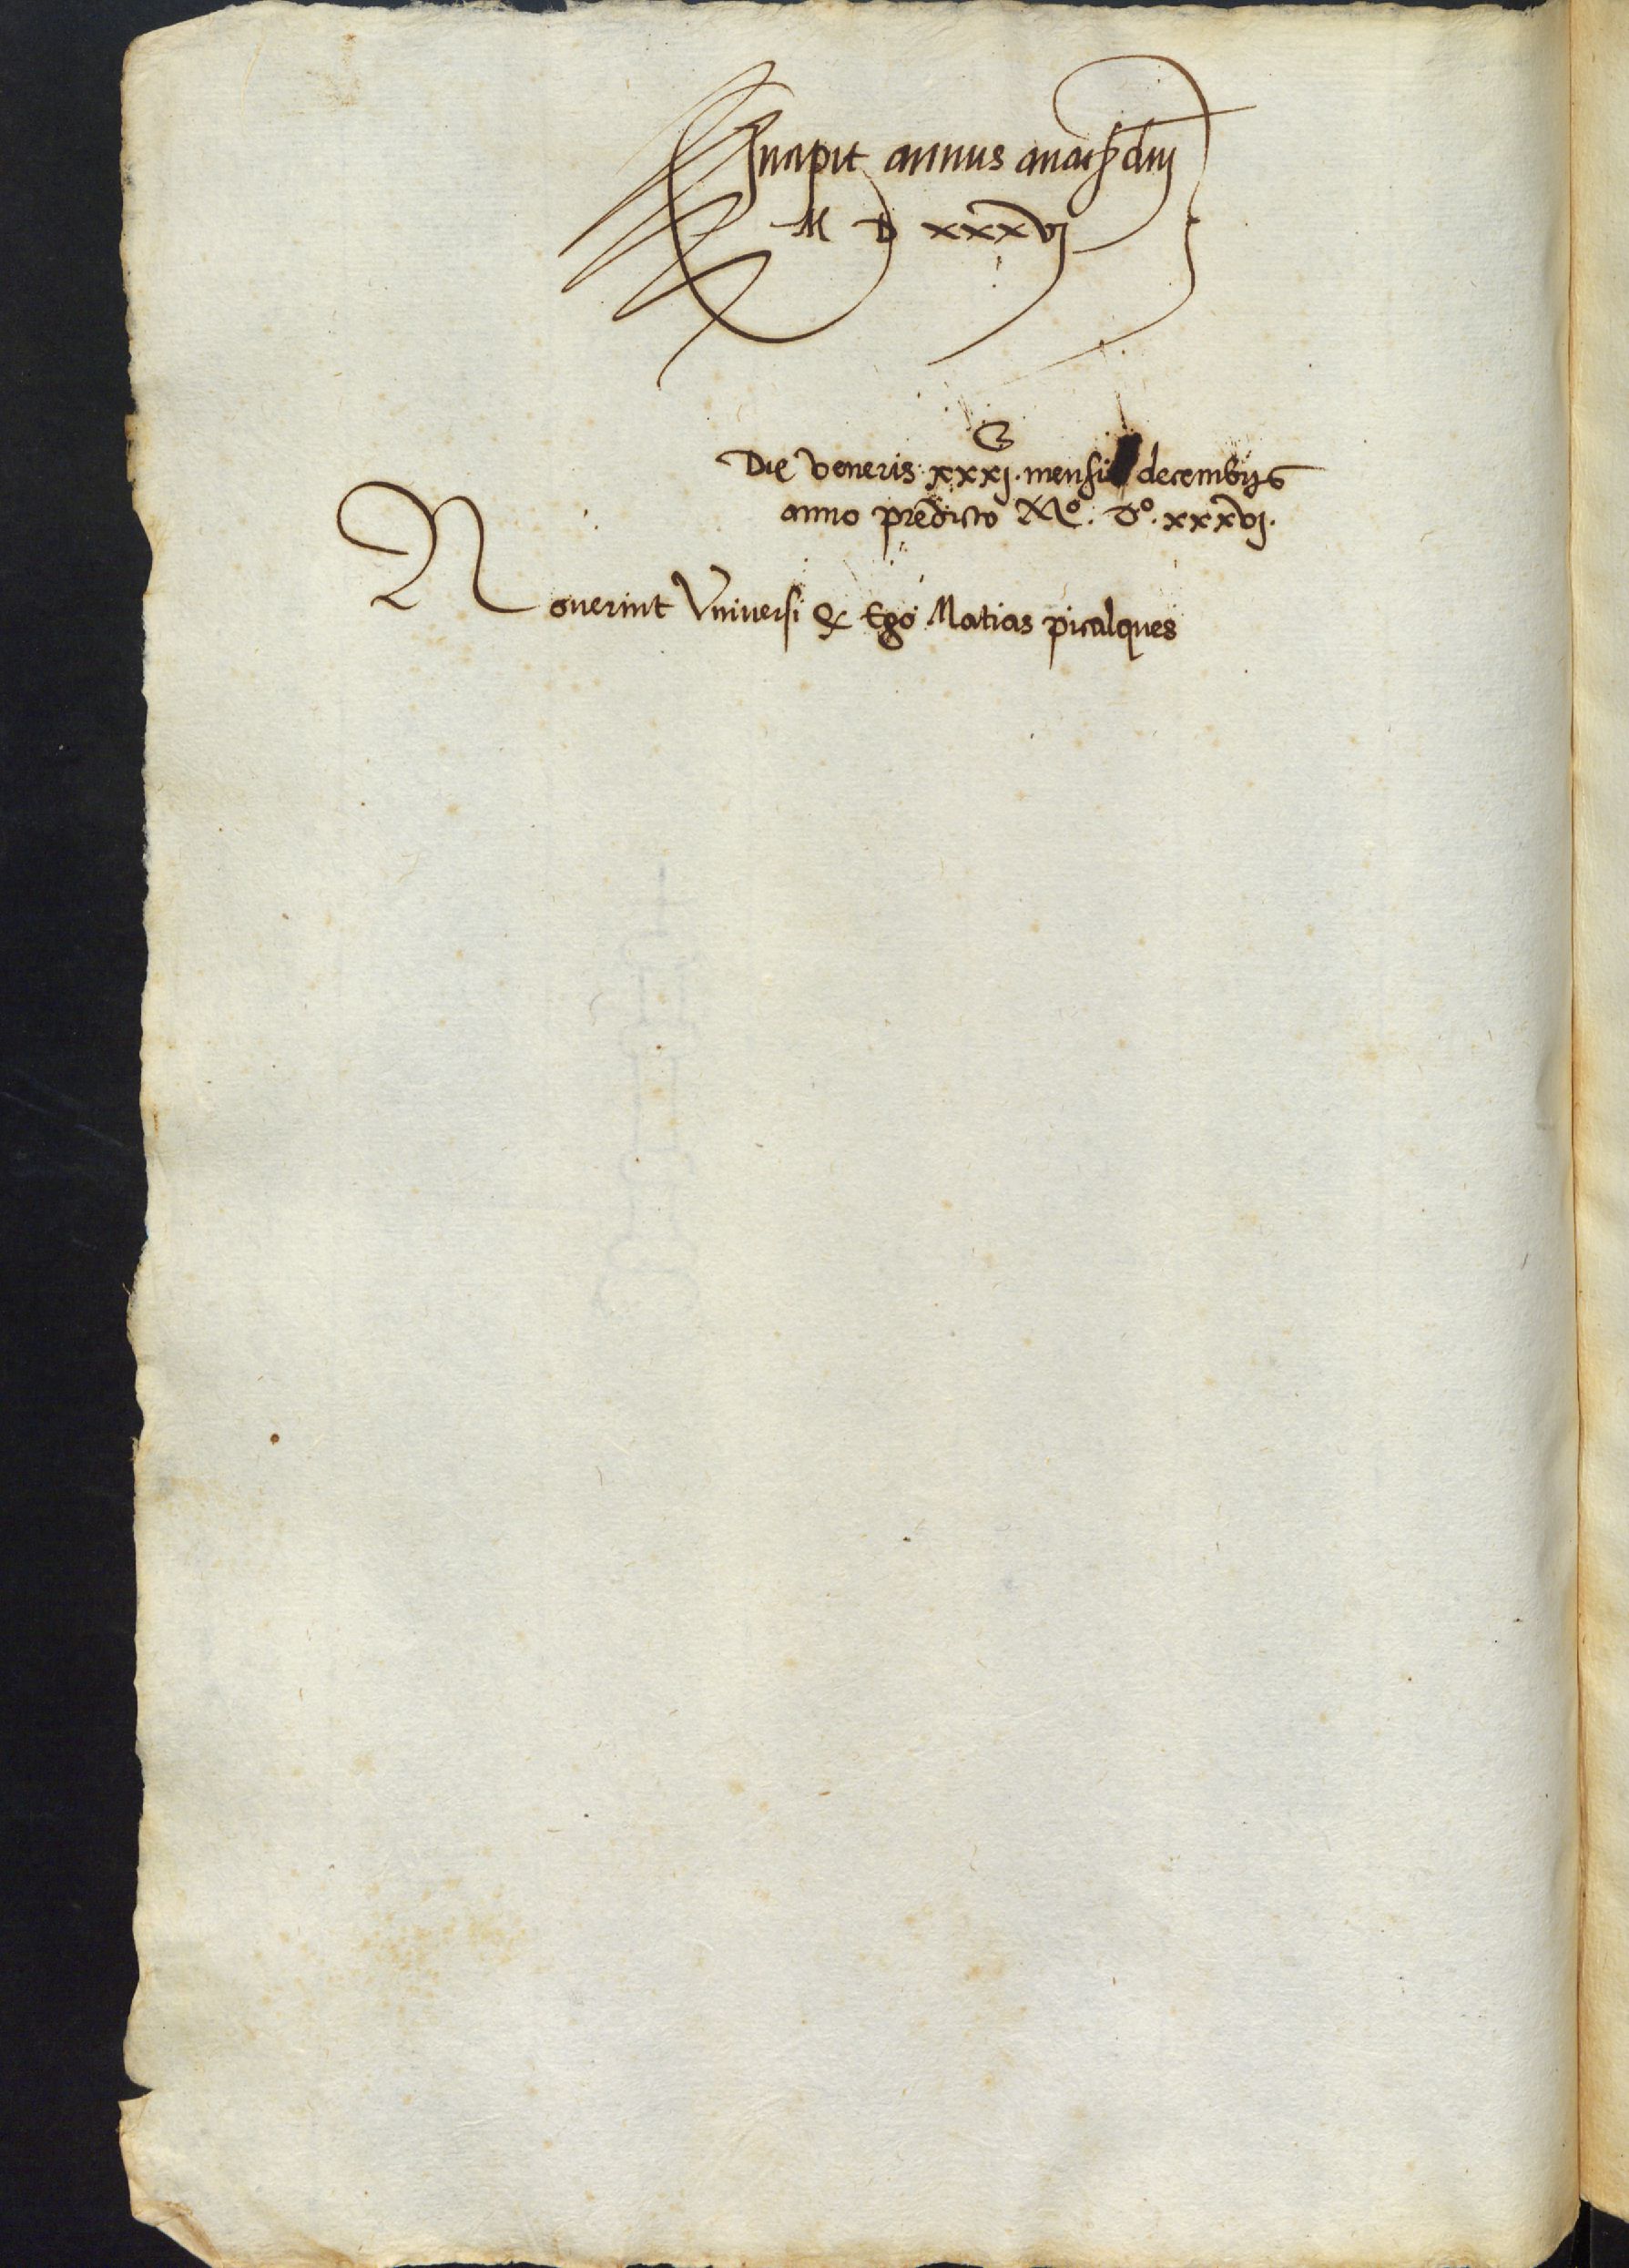 Incipit annus anatis dni
M D xxxvj
Die veneris xxxj. mensis decembris
anno predicto Mº. Dº. xxxvj.
Noverint Universi q Ego Matias picalques